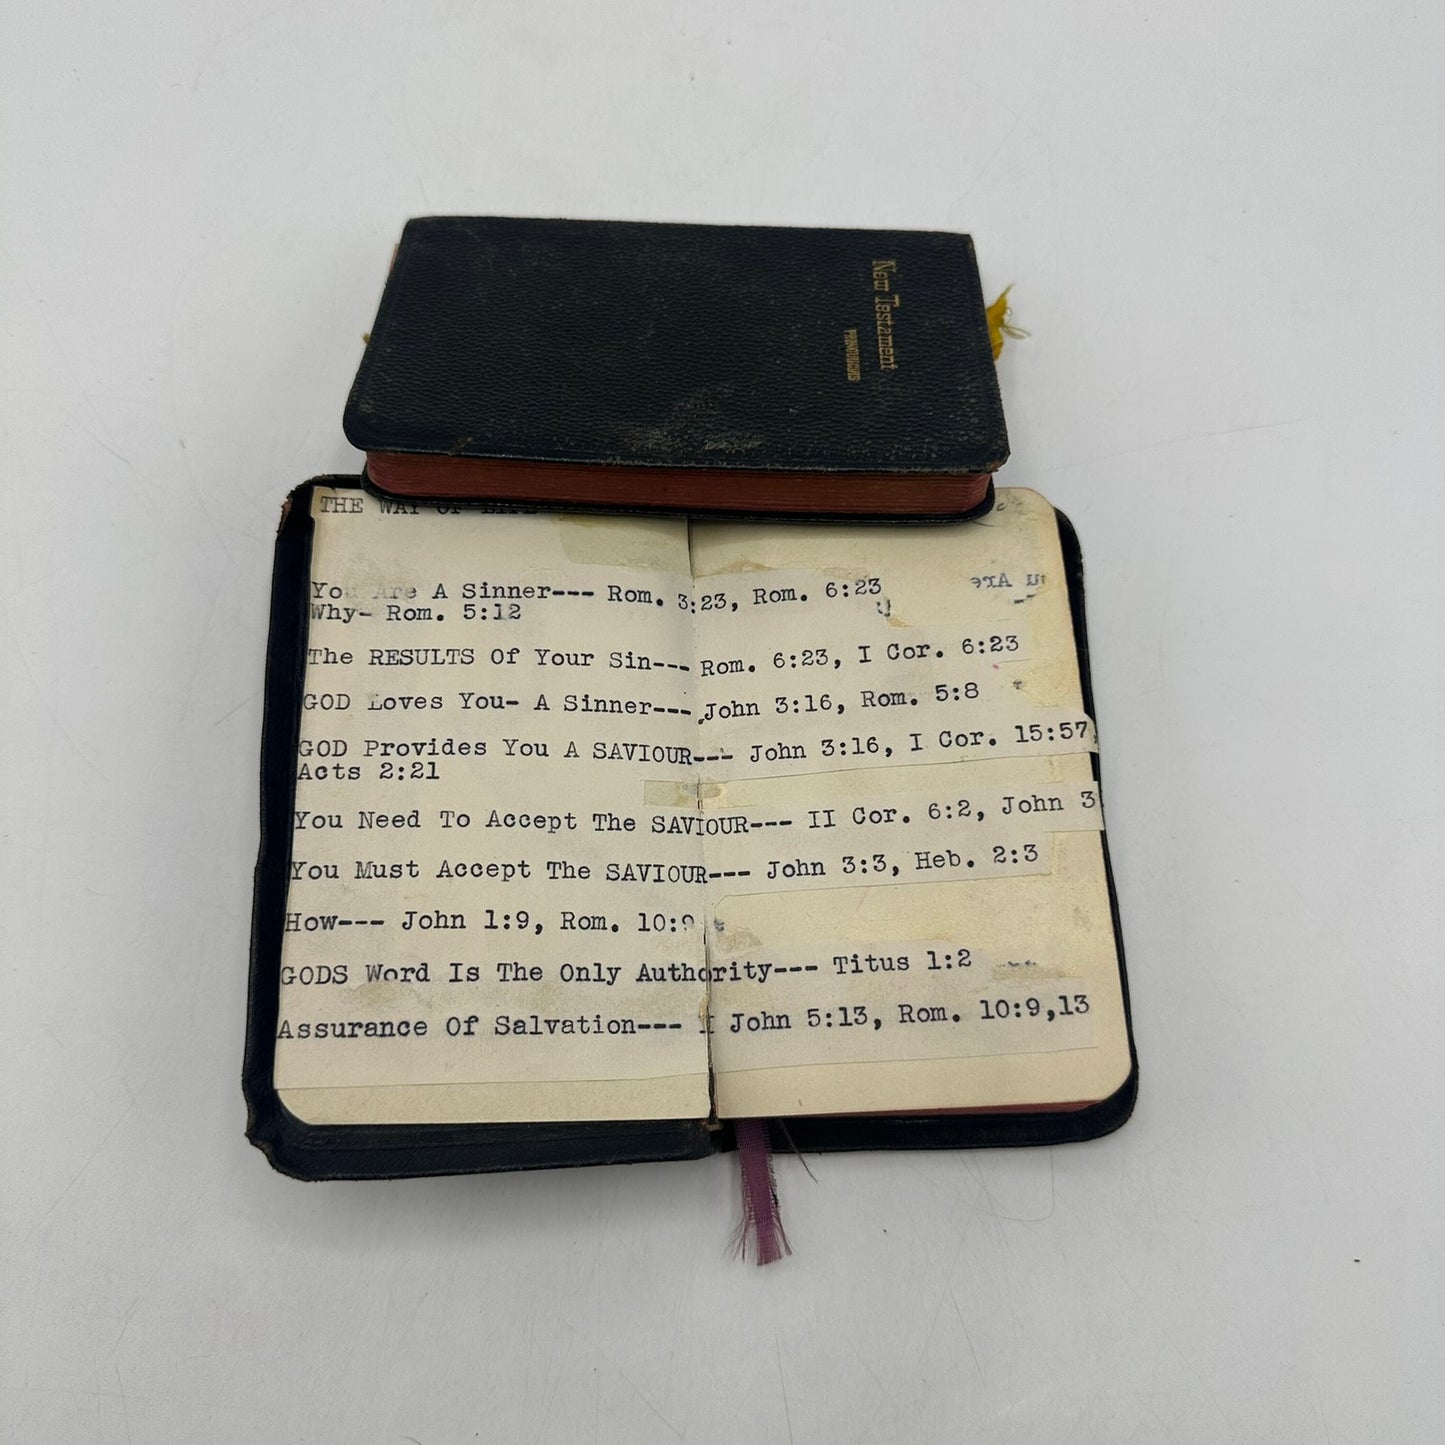 New Testament
THE WAY OF LIFE
You Are A Sinner--- Rom. 3:23, Rom. 6:23
Why- Rom. 5:12
The RESULTS Of Your Sin--- Rom. 6:23, I Cor. 6:23
GOD Loves You- A Sinner--- John 3:16, Rom. 5:8
GOD Provides You A SAVIOUR--- John 3:16, I Cor. 15:57,
Acts 2:21
You Need To Accept The SAVIOUR--- II Cor. 6:2, John 3
You Must Accept The SAVIOUR--- John 3:3, Heb. 2:3
How--- John 1:9, Rom. 10:9
GODS Word Is The Only Authority--- Titus 1:2
Assurance Of Salvation--- I John 5:13, Rom. 10:9,13